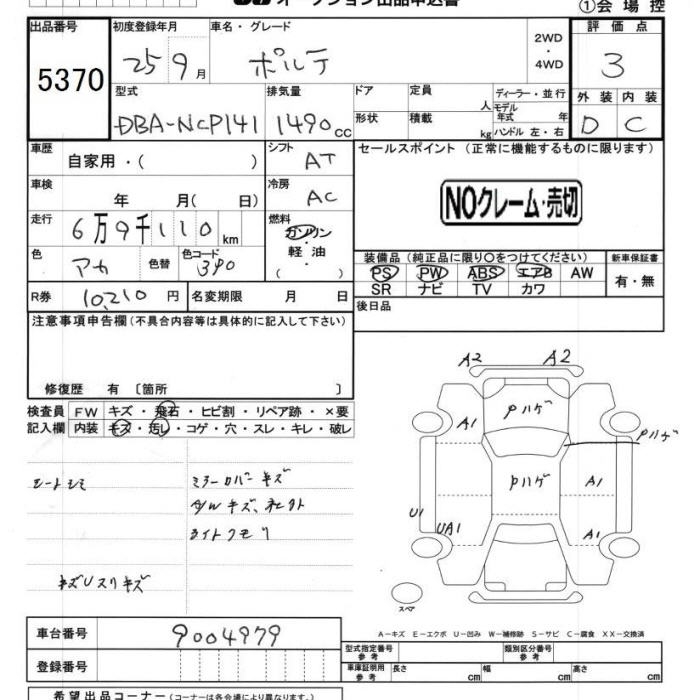 オークション出品申込書
①会場控
出品番号 5370
初度登録年月 25 9月
車名・グレード ポルテ
2WD・4WD
評価点 3
型式 DBA-NCP141
排気量 1490cc
ドア
定員 人
ディーラー・並行
モデル年式 年
形状
積載 kg
ハンドル 左・右
外装 D
内装 C
車歴 自家用・( )
シフト AT
セールスポイント(正常に機能するものに限ります)
車検 年 月( 日)
冷房 AC
NOクレーム・売切
走行 6万9千110km
燃料 ガソリン・軽油・( )
色 アカ 色替
色コード 3P0
装備品(純正品に限り○をつけてください)
PS PW ABS エアB AW
SR ナビ TV カワ
新車保証書
有・無
R券 10,210円
名変期限 月 日
後日品
注意事項申告欄(不具合内容等は具体的に記入して下さい)
修復歴 有〔箇所 〕
検査員記入欄
FW キズ・飛石・ヒビ割・リペア跡・×要
内装 キズ・汚レ・コゲ・穴・スレ・キレ・破レ
シートシミ
ミラーカバーキズ
ライトクモリ
キズUスリキズ
A2 A2
Pハゲ
A1
Pハゲ
Pハゲ
A1
U1
UA1
A1
スペア
A-キズ E-エクボ U-凹み W-補修跡 S-サビ C-腐食 XX-交換済
車台番号 9004979
登録番号
型式指定番号 参考
類別区分番号 参考
車庫証明用 参考
長さ cm
幅 cm
高さ cm
希望出品コーナー(コーナーは各会場により異なります。)